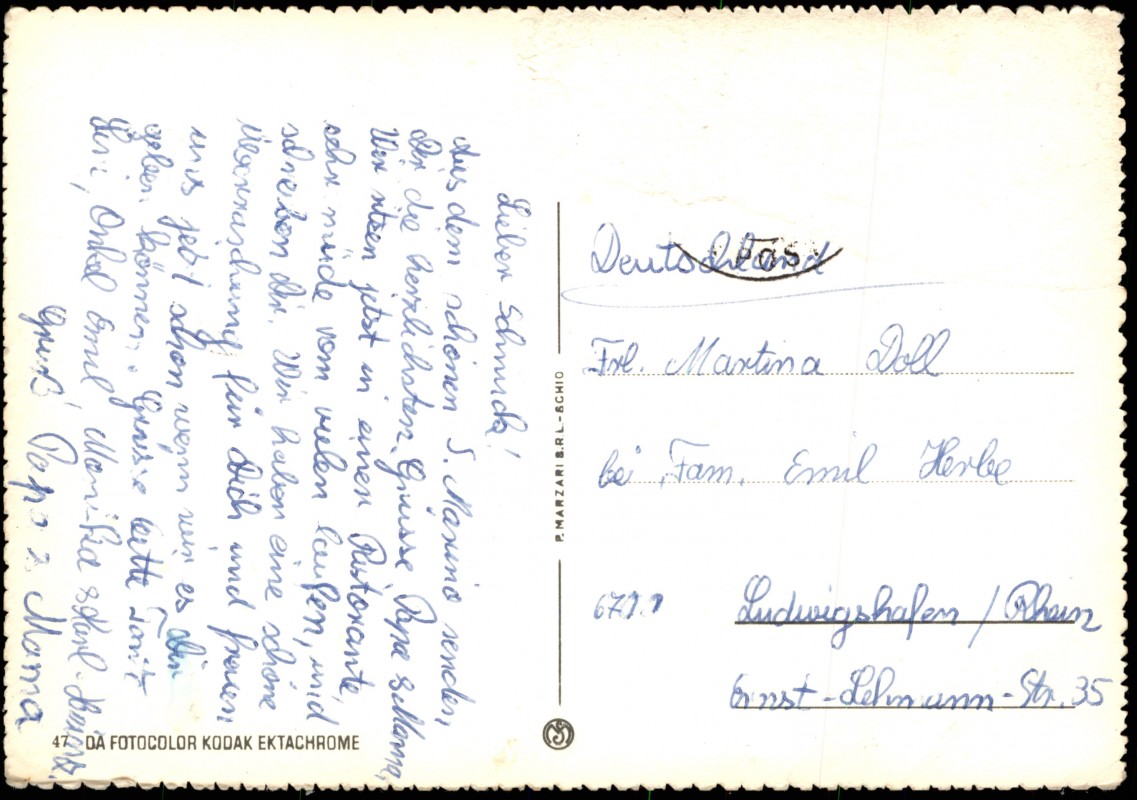 Lieber Schnuck!
Aus dem schönen S. Marino senden
Dir die herzlichsten Grüsse Papa & Mama,
Wir sitzen jetzt in einen Ristorante,
sehr müde vom vielen laufen, und
schreiben Dir. Wir haben eine schöne
Überraschung für Dich und freuen
uns jetzt schon wenn wir es dir
geben können. Grüsse bitte Tante
Onkel Emil Monika & Karl-Heinz.
Gruß! Papa & Mama
47 DA FOTOCOLOR KODAK EKTACHROME
P. MARZARI S.R.L. - SCHIO
Deutschland
Frl. Martina Doll
bei Fam. Emil Herbe
Ludwigshafen / Rhein
Ernst-Lehmann-Str. 35